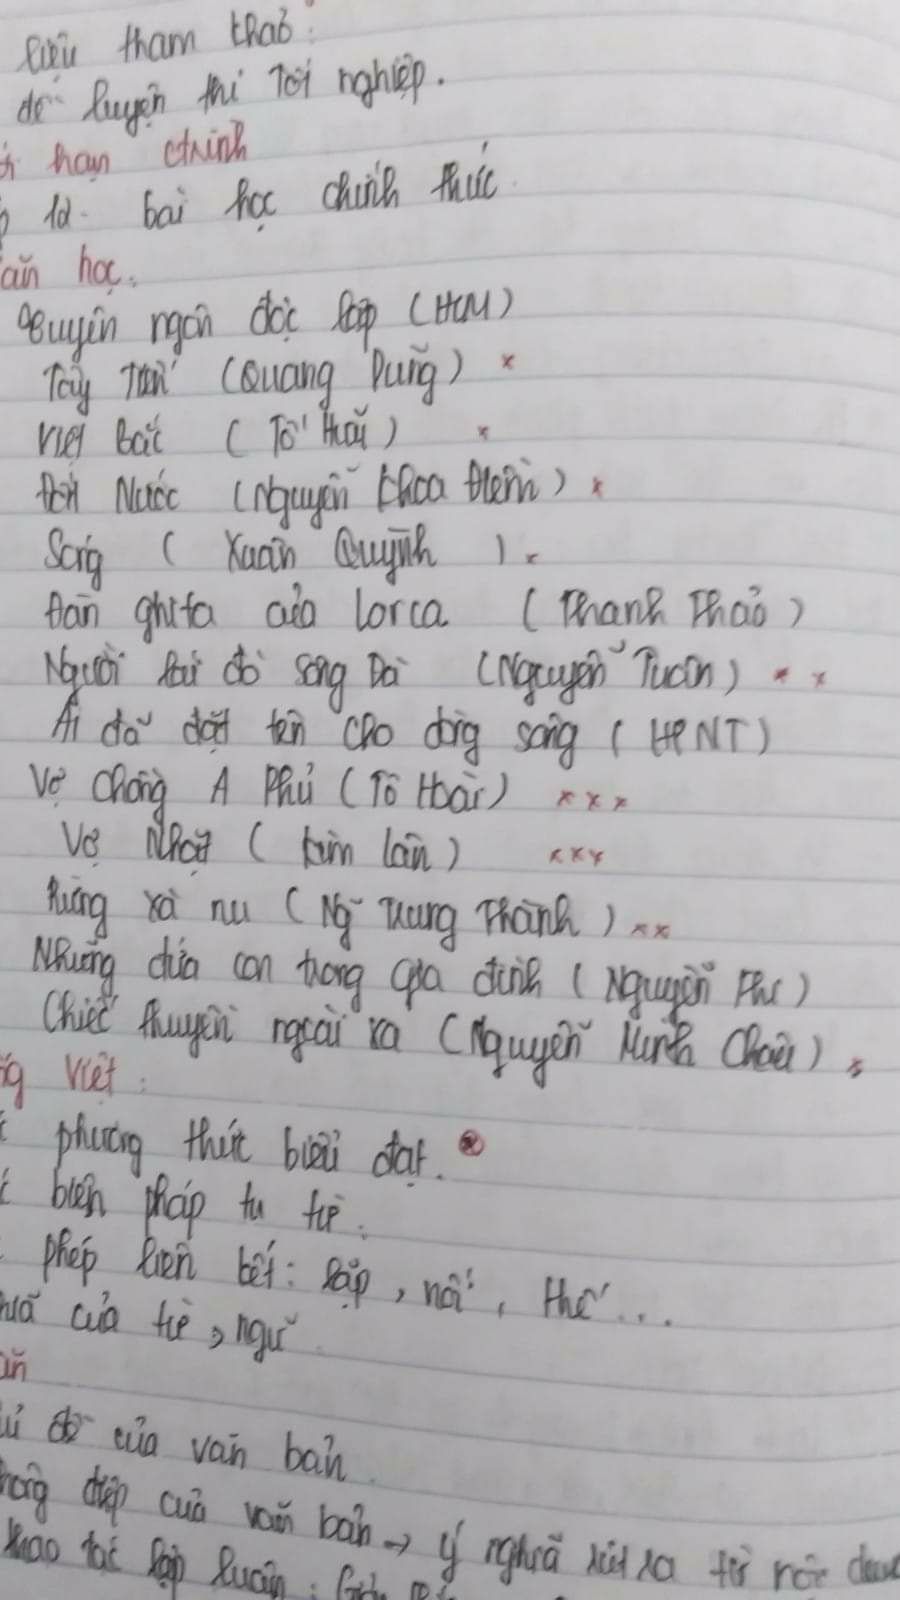 liệu tham khảo:
đề luyện thi Tốt nghiệp.
hạn chính
12. bài học chính thức.
ăn học.
Tuyên ngôn độc lập (HCM)
Tây Tiến (Quang Dũng) x
Việt Bắc (Tố Hữu) x
Đất Nước (Nguyễn Khoa Điềm) x
Sóng (Xuân Quỳnh) x
Đàn ghita của Lorca (Thanh Thảo)
Người lái đò sông Đà (Nguyễn Tuân) x x
Ai đã đặt tên cho dòng sông (HPNT)
Vợ chồng A Phủ (Tô Hoài) x x x
Vợ Nhặt (Kim Lân) x x x
Rừng xà nu (Ng Trung Thành) x x
Những đứa con trong gia đình (Nguyễn Thi)
Chiếc thuyền ngoài xa (Nguyễn Minh Châu) x
ng Việt:
phương thức biểu đạt.
biện pháp tu từ.
phép liên kết: lặp, nối, thế...
của từ, ngữ
ăn
đề của văn bản.
điệp của văn bản → ý nghĩa rút ra từ
thao tác lập luận: